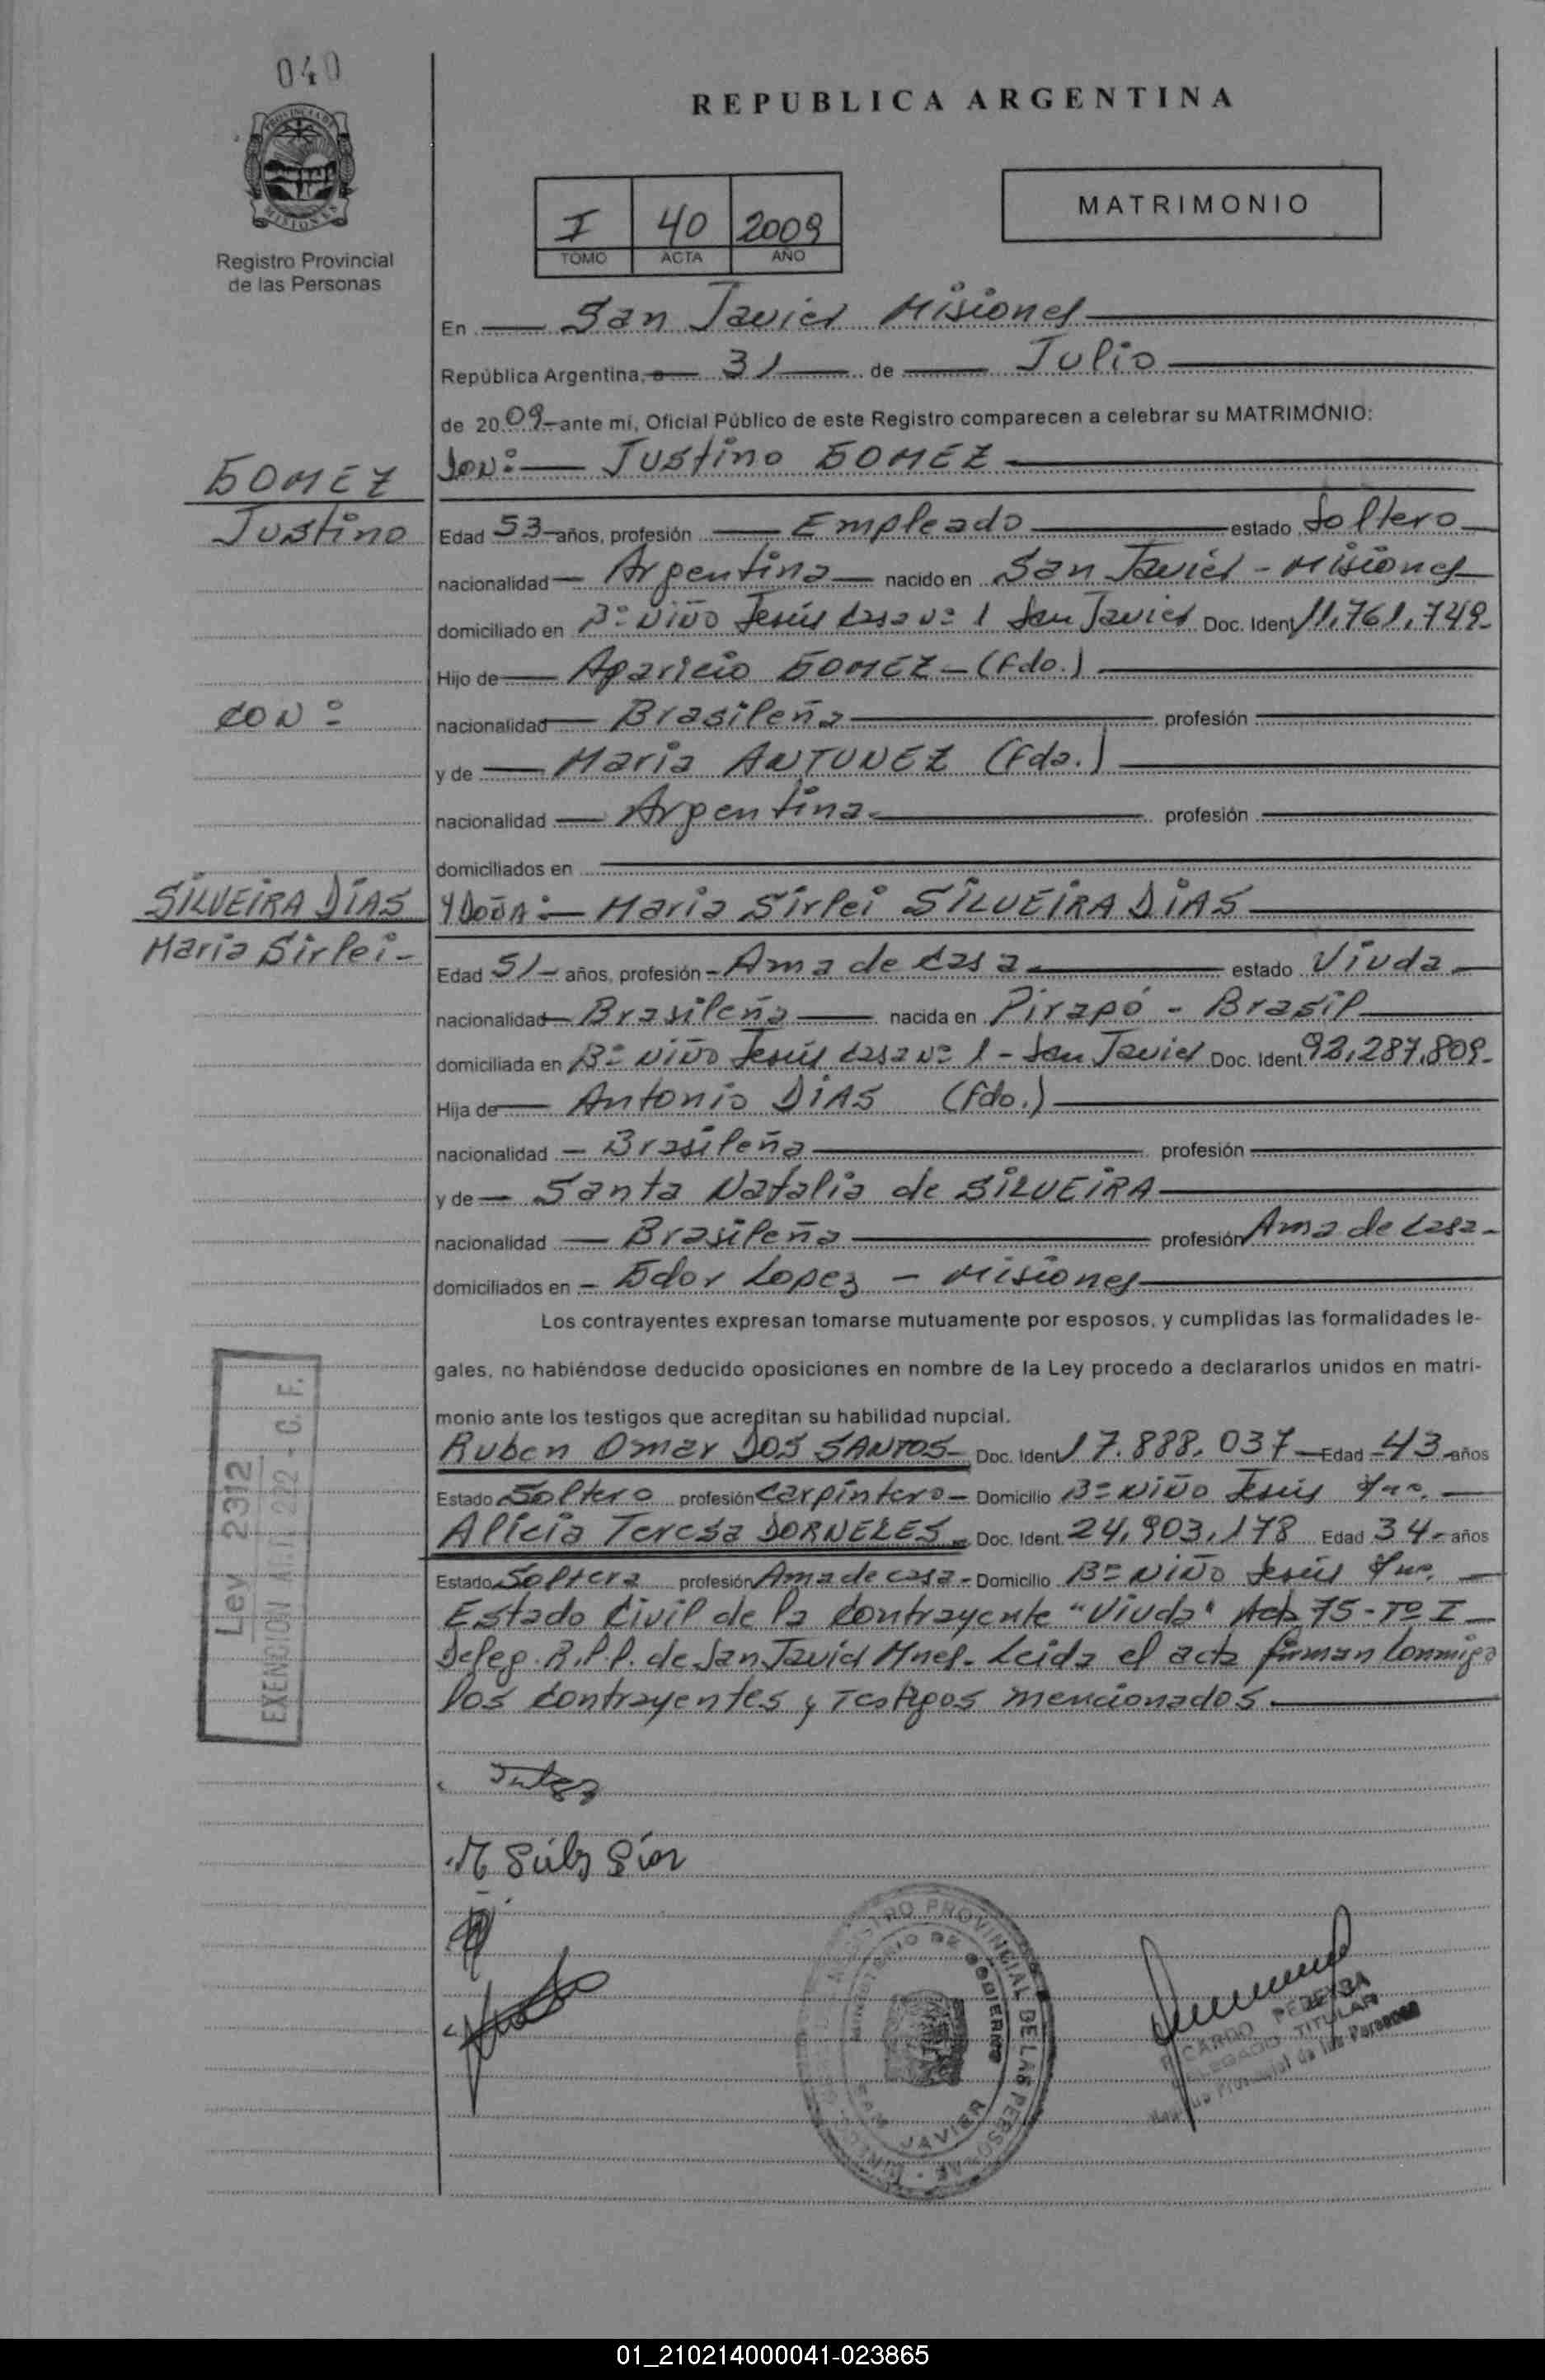 040
PROVINCIA DE
MISIONES
Registro Provincial
de las Personas
REPUBLICA ARGENTINA
I 40 2009
TOMO ACTA AÑO
MATRIMONIO
En San Javier Misiones
República Argentina, a 31 de Julio
de 2009 ante mi, Oficial Público de este Registro comparecen a celebrar su MATRIMONIO:
DON: Justino GOMEZ
GOMEZ
Justino
Edad 53 años, profesión Empleado estado Soltero
nacionalidad Argentina nacido en San Javier - Misiones
domiciliado en Bº Niño Jesús Casa Nº 1 San Javier Doc. Ident 11.761.749
Hijo de Aparicio GOMEZ - (fdo.)
CON:
nacionalidad Brasileña profesión
y de Maria ANTUNEZ (fda.)
nacionalidad Argentina profesión
domiciliados en
SILVEIRA DIAS
Maria Sirlei
Y DOÑA: Maria Sirlei SILVEIRA DIAS
Edad 51 años, profesión Ama de Casa estado Viuda
nacionalidad Brasileña nacida en Pirapó - Brasil
domiciliada en Bº Niño Jesús Casa Nº 1 - San Javier Doc. Ident 92.287.809
Hija de Antonio DIAS (fdo.)
nacionalidad Brasileña profesión
y de Santa Natalia de SILVEIRA
nacionalidad Brasileña profesión Ama de Casa
domiciliados en Gdor Lopez - Misiones
Los contrayentes expresan tomarse mutuamente por esposos, y cumplidas las formalidades le-
gales, no habiéndose deducido oposiciones en nombre de la Ley procedo a declararlos unidos en matri-
monio ante los testigos que acreditan su habilidad nupcial.
Ruben Omar DOS SANTOS Doc. Ident 17.888.037 Edad 43 años
Estado Soltero profesión Carpintero Domicilio Bº Niño Jesús
Alicia Teresa DORNELES Doc. Ident. 24.903.178 Edad 34 años
Estado Soltera profesión Ama de casa Domicilio Bº Niño Jesús
Estado Civil de la Contrayente "Viuda" Acta 75 - Tº I
Deleg. R.P.P. de San Javier Mnes. Leida el acta firman Conmigo
los Contrayentes y Testigos mencionados
Ley 2312
EXENCION Art. 222 - C. F.
REGISTRO PROVINCIAL DE LAS PERSONAS
MINISTERIO DE GOBIERNO
SAN JAVIER
RICARDO PEREYRA
DELEGADO TITULAR
Registro Provincial de las Personas
01_210214000041-023865